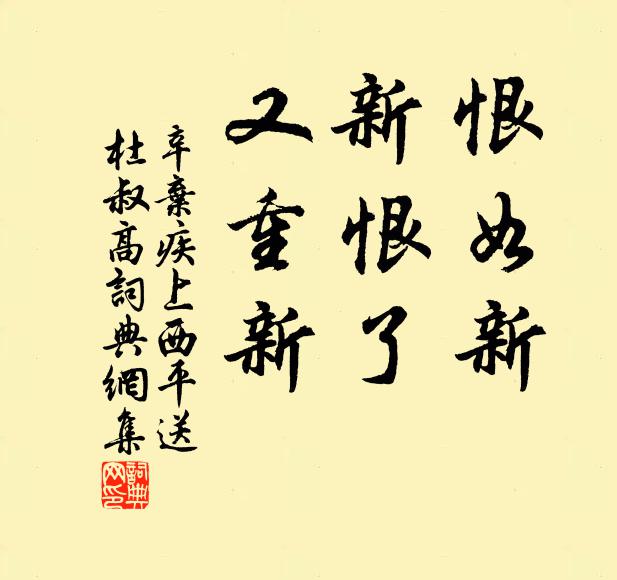 恨如新
新恨了
又重新
辛棄疾上西平送
杜叔高詞典網集
詞典网印